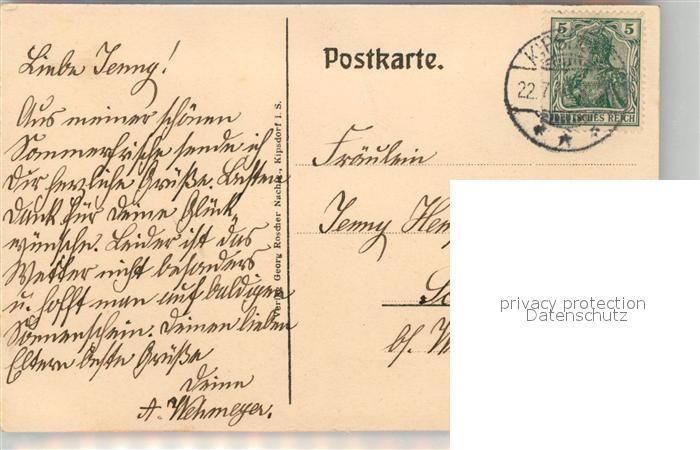 Liebe Jenny!
Aus meiner schönen
Sommerfrische sende ich
Dir herzliche Grüße. Besten
Dank für Deine Glück-
wünsche. Leider ist das
Wetter nicht besonders
u. hofft man auf baldigen
Sonnenschein. Deinen lieben
Eltern beste Grüße
Deine
A. Wehmeyer.
Verlag Georg Roscher Nachf. Kipsdorf i. S.
Postkarte.
5 5
DEUTSCHES REICH
22.7
Fräulein
Jenny
b/.
privacy protection
Datenschutz